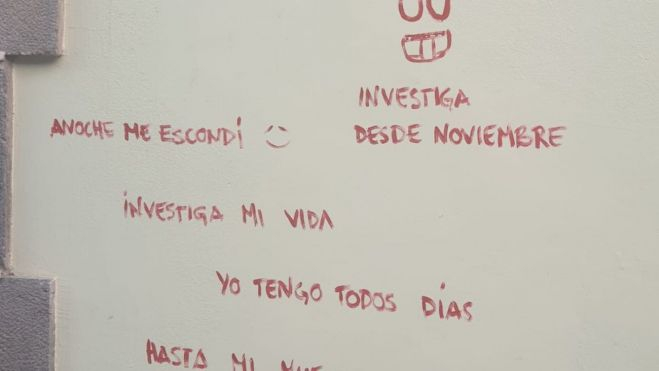 INVESTIGA
DESDE NOVIEMBRE
ANOCHE ME ESCONDÍ
INVESTIGA MI VIDA
YO TENGO TODOS DÍAS
HASTA MI